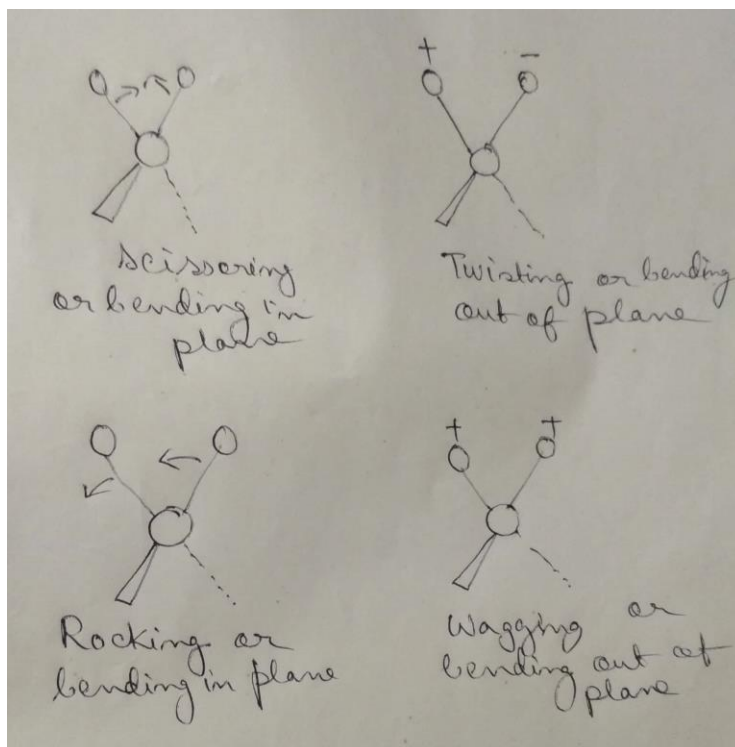 + -
scissoring
or bending in
plane
Twisting or bending
out of plane
+ +
Rocking or
bending in plane
Wagging or
bending out of
plane